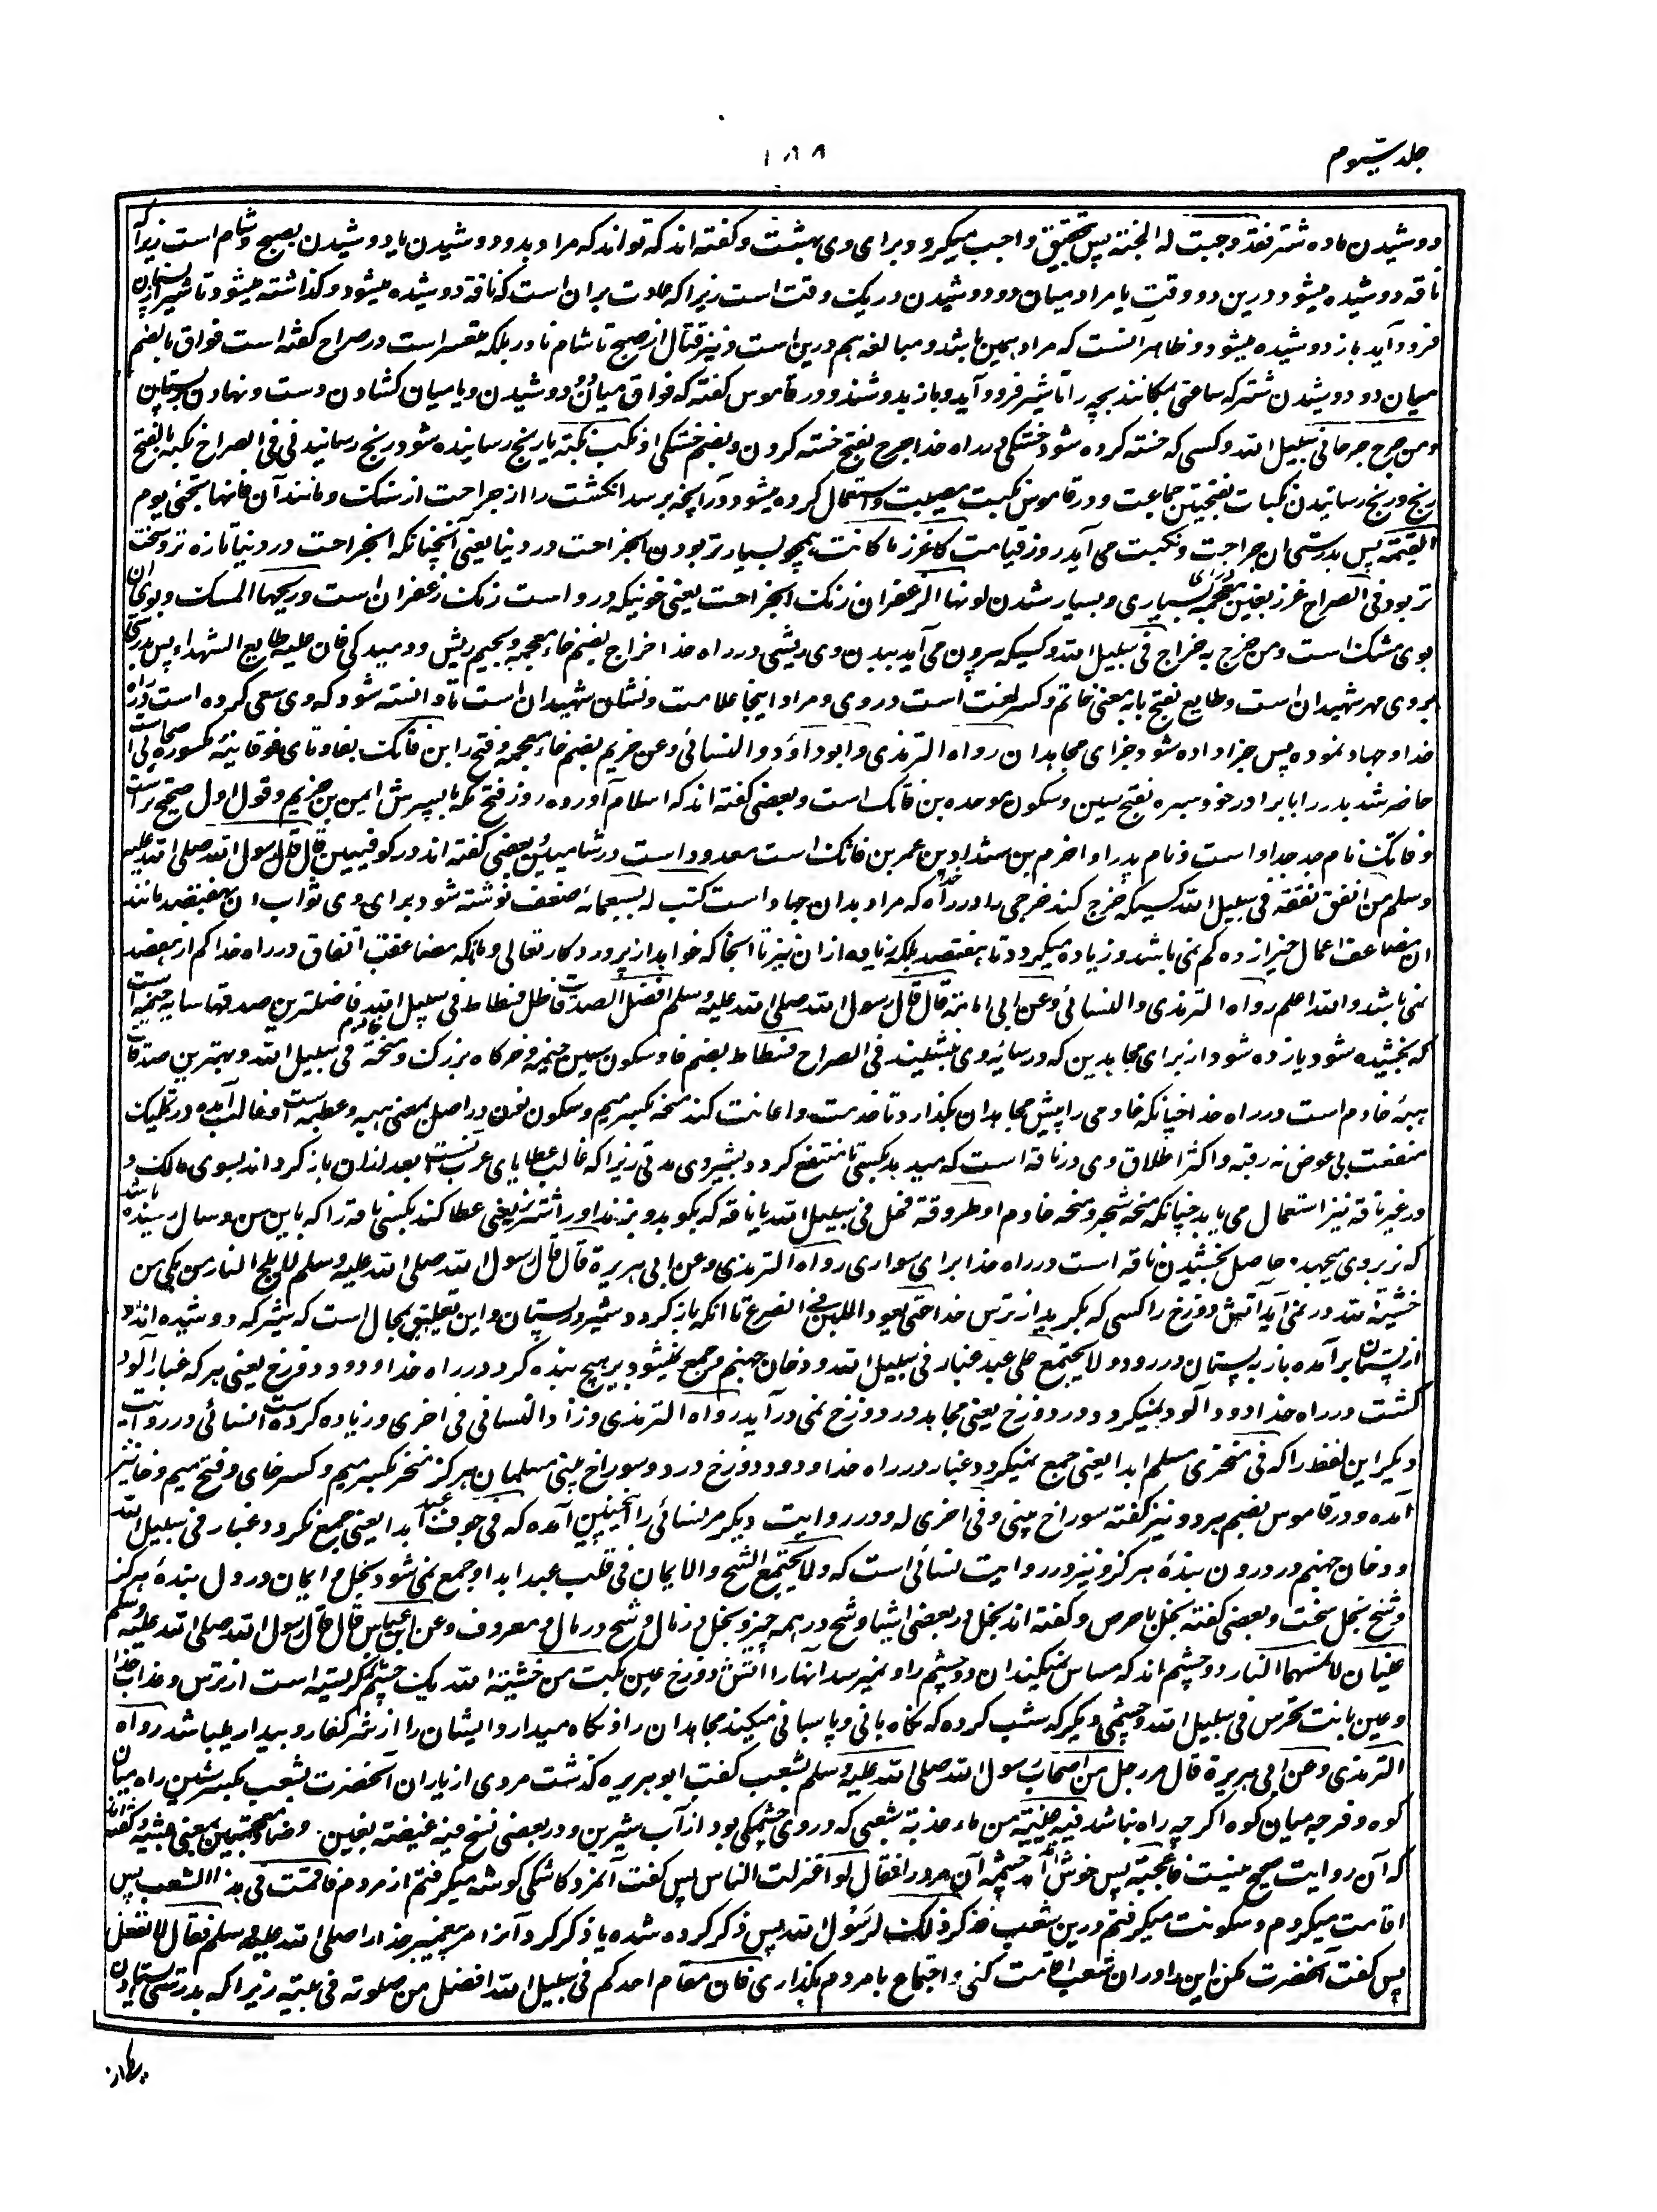 جلد سیوم
۱۸۸
دوشیدن ماده شتر فقد وجبت له الجنة پس بتحقیق واجب میگردد برای وی بهشت و گفته اند که تواند که مراد بدو دوشیدن یا دوشیدن بصبح و شام است زیرا که
ناقه دوشیده میشود درین دو وقت یا مراد میان دو دوشیدن در یک وقت است زیرا که عادت بران است که ناقه دوشیده میشود و گذاشته میشود تا شیر از پستان
فرود آید باز دوشیده میشود و ظاهر آنست که مراد همین باشد و مبالغه هم درین است و نیز قتال از صبح تا شام نادر بلکه متعسر است در صراح گفته است فواق بالضم
میان دو دوشیدن شتر که ساعتی بمکانند بچه را تا شیر فرود آید و باز بدوشند و در قاموس گفته که فواق میان دو دوشیدن و یا میان کشادن دست و نهادن بر پستان
ومن جرح جرحا فی سبیل الله و کسی که خسته کرده شود خستگی در راه خدا جرح بفتح خسته کردن و بضم خستگی او نکب نکبة یا رنج رسانیده شود رنج رسانیدنی فی الصراح نکبه بالفتح
رنج و رنج رسانیدن نکبات بفتحتین جماعت و در قاموس نکبت مصیبت و استعمال کرده میشود در آنچه برسد انگشت را از جراحت از سنگ و مانند آن فانها تجئ یوم
القیمة پس بدرستی ان جراحت و نکبت می آید روز قیامت کاغزر ما کانت همچو بسیار تر بودن آن جراحت در دنیا یعنی آنچنانکه آن جراحت در دنیا تازه تر و سخت
تر بود فی الصراح غزر بغین معجمه بسیاری و بسیار شدن لونها الزعفران رنگ آن جراحت یعنی خونیکه در و است رنگ زعفران است و ریحها المسک و بوی ان
بوی مشک است ومن خرج به خراج فی سبیل الله و کسیکه بیرون می آید ببدن وی ریشی در راه خدا خراج بضم خاء معجمه و بجیم ریش و دمیدگی فان علیه طابع الشهداء پس بدرستی
بروی مهر شهیدان است و طابع بفتح با به معنی خاتم و کسر لغت است در وی و مراد اینجا علامت و نشان شهیدان است تا دانسته شود که وی سعی کرده است در راه
خدا و جهاد نموده پس جزا داده شود جزای مجاهدان رواه الترمذی و ابو داؤد و النسائی وعن خریم بضم خاء معجمه و فتح را بن فاتک بفا و تای فوقانیه مکسوره صحابی است
حاضر شد بدر را با برادر خود سبره بفتح سین و سکون موحده بن فاتک است و بعضی گفته اند که اسلام آورده روز فتح مکه با پسرش ایمن بن خریم و قول اول صحیح تر است
و فاتک نام جد جد او است و نام پدر او اخرم بن شداد بن عمر بن فاتک است معدود است در شامیین و بعضی گفته اند در کوفیین قال قال رسول الله صلی الله علیه
وسلم من انفق نفقة فی سبیل الله کسیکه خرج کند خرجی را در راه خدا که مراد بدان جهاد است کتب له بسبعمائة ضعف نوشته شود برای وی ثواب ان بهفتصد مانند
ان مضاعف اعمال خیر از ده کم نمی باشد و زیاده میگردد تا بهفتصد بلکه زیاده از ان نیز تا آنجا که خواهد از پروردگار تعالی و بانکه مضاعفت انفاق در راه خدا کم از هفتصد
نمی باشد و الله اعلم رواه الترمذی و النسائی وعن ابی امامة قال قال رسول الله صلی الله علیه وسلم افضل الصدقات ظل فسطاط فی سبیل الله فاضلترین صدقها سایه خیمه است
که بخشیده شود یا زده شود از برای مجاهدین که در سایه وی بنشینند فی الصراح فسطاط بضم فا و سکون سین خیمه و خرگاه بزرگ و منحة خادم فی سبیل الله و بهترین صدقات
هبهٔ خادم است در راه خدا چنانکه خادمی را پیش مجاهدان بگذارد تا خدمت و اعانت کند منحه بکسر میم و سکون نون در اصل بمعنی هبه و عطیه است و غالب آمده در تملیک
منفعت بی عوض نه رقبه و اکثر اطلاق وی در ناقه است که میدهد بکسی تا منتفع گردد بشیر وی مدتی زیرا که غالب عطایای عرب آنست بعد ازان باز گرداند بسوی مالک و
در غیر ناقه نیز استعمال می یابد چنانکه منحه شجر و منحه خادم او طروقة فحل فی سبیل الله یا ناقه که بکوبد و بزند او را شتر نر یعنی عطا کند بکسی ناقه را که باین سن و سال رسیده باشد
که نر بروی بجهد حاصل بخشیدن ناقه است در راه خدا برای سواری رواه الترمذی وعن ابی هریرة قال قال رسول الله صلی الله علیه وسلم لا یلج النار من بکی من
خشیة الله در نمی آید آتش دوزخ را کسی که بگرید از ترس خدا حتی یعود اللبن فی الضرع تا آنکه باز گردد شیر در پستان و این تعلیق بمحال است که شیر که دوشیده اند و
از پستان برآمده باز به پستان در رود و لا یجتمع علی عبد غبار فی سبیل الله و دخان جهنم و جمع نمیشود بر هیچ بنده گرد در راه خدا و دود دوزخ یعنی هر که غبار آلود
گشت در راه خدا دود آلود نمیگردد در دوزخ یعنی مجاهد در دوزخ نمی درآید رواه الترمذی وزاد النسائی فی اخری و زیاده کرده است النسائی در روایت
دیگر این لفظ را که فی منخری مسلم ابدا یعنی جمع نمیگردد غبار در راه خدا و دود دوزخ در دو سوراخ بینی مسلمان هرگز منخر بکسر میم و کسر خای و فتح میم و خا نیز
آمده و در قاموس بضم هر دو نیز گفته سوراخ بینی و فی اخری له و در روایت دیگر مر نسائی را این چنین آمده که فی جوف عبد ابدا یعنی جمع نگردد غبار فی سبیل الله
و دخان جهنم در درون بندهٔ هرگز و نیز در روایت نسائی است که و لا یجتمع الشح والایمان فی قلب عبد ابدا و جمع نمی شود بخل و ایمان در دل بندهٔ هرگز
و شح بخل سخت و بعضی گفته بخل با حرص و گفته اند بخل در بعضی اشیا و شح در همه چیز و بخل در مال و شح در مال و معروف وعن ابن عباس قال قال رسول الله صلی الله علیه وسلم
عینان لا تمسهما النار دو چشم اند که مساس نمیکند ان دو چشم را و نمیرسد انها را آتش دوزخ عین بکت من خشیة الله یک چشم گریسته است از ترس و عذاب خدا
وعین باتت تحرس فی سبیل الله و چشمی دیگر که شب کرده که نگاه بانی و پاسبانی میکند مجاهدان را و نگاه میدارد ایشان را از شر کفار و بیدار میباشد رواه
الترمذی وعن ابی هریرة قال مر رجل من اصحاب رسول الله صلی الله علیه وسلم بشعب گفت ابو هریره گذشت مردی از یاران آنحضرت بشعب بکسر شین راه میان
کوه و فرجه میان کوه اگر چه راه نباشد فیه عیینة من ماء عذبة شعبی که در وی چشمکی بود از آب شیرین و در بعضی نسخ فیه غیضة بغین و ضاد معجمتین بمعنی بیشه و گفته اند
که آن روایت صحیح نیست فاعجبته پس خوش آمد چشمه آن مرد را فقال لو اعتزلت الناس پس گفت آنمرد کاشکی گوشه میگرفتم از مردم فاقمت فی هذا الشعب پس
اقامت میکردم و سکونت میگرفتم درین شعب فذکر ذلک لرسول الله پس ذکر کرده شده یا ذکر کرد آنرا مر پیغمبر خدا را صلی الله علیه وسلم فقال لا تفعل
پس گفت آنحضرت مکن این را در ان شعب اقامت کنی و اجتماع با مردم بگذاری فان مقام احدکم فی سبیل الله افضل من صلوته فی بیته زیرا که بدرستی ایستادن